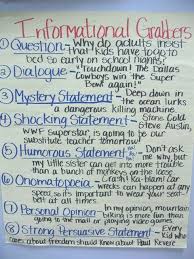 Informational Grabbers
① Question - Why do adults insist
that kids have to go to
bed so early on school nights?
② Dialogue - "Touchdown! The Dallas
Cowboys win the Super
Bowl again!"
③ Mystery Statement - Deep down in
the ocean lurks
a monstrous killer.
④ Shocking Statement - Stone Cold
Steve Austin,
WWF Superstar, is going to be
substitute teacher tomorrow!
⑤ Humorous Statement - Don't ask
me why but
my little sister can do more trouble
than a bunch of monkeys on the loose
⑥ Onomatopoeia - Crash! Ka-bam! Car
accidents can happen at any
speed so it's important to wear your seat-
belt at all times.
⑦ Personal Opinion - In my opinion, mountain
biking is more fun than
going to the mall or playing video games.
⑧ Strong Persuasive Statement - Every
Kid who
cares about freedom should know about Paul Revere